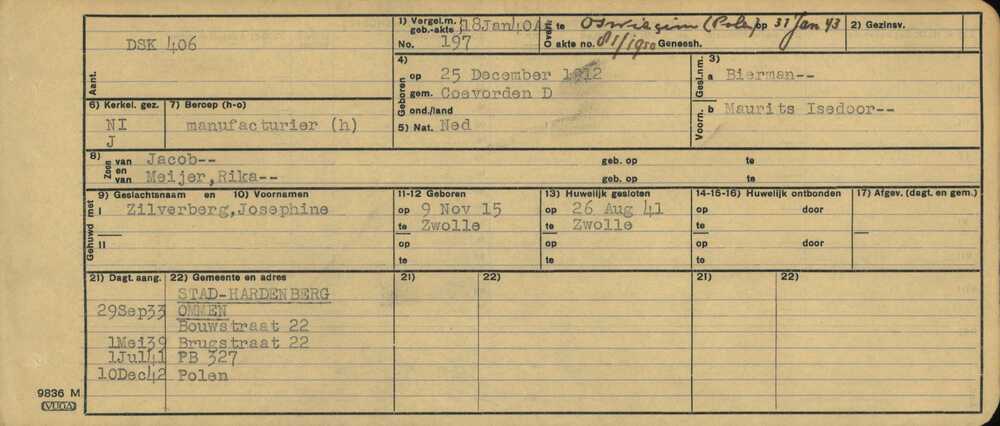 DSK 406
Aant.
1) Vergel.m. geb.-akte 18Jan40A
No. 197
Overl. te Oswiecim (Polen) op 31 Jan 43
akte no. 81/1950 Geneesh.
2) Gezinsv.
4) Geboren op 25 December 1912
gem. Coevorden D
ond./land
5) Nat. Ned
3) Gesl.nm. a Bierman--
Voorn. b Maurits Isedoor--
6) Kerkel. gez. 7) Beroep (h-o)
NI manufacturier (h)
J
8) Zoon van Jacob-- geb. op te
en van Meijer,Rika-- geb. op te
9) Geslachtsnaam en 10) Voornamen 11-12 Geboren 13) Huwelijk gesloten 14-15-16) Huwelijk ontbonden 17) Afgev. (dagt. en gem.)
Gehuwd met
I Zilverberg,Josephine op 9 Nov 15 op 26 Aug 41 op door
te Zwolle te Zwolle te
II op op op door
te te te
21) Dagt. aang. 22) Gemeente en adres 21) 22) 21) 22)
STAD-HARDENBERG
29Sep33 OMMEN
Bouwstraat 22
1Mei39 Brugstraat 22
1Jul41 PB 327
10Dec42 Polen
9836 M
VUGA